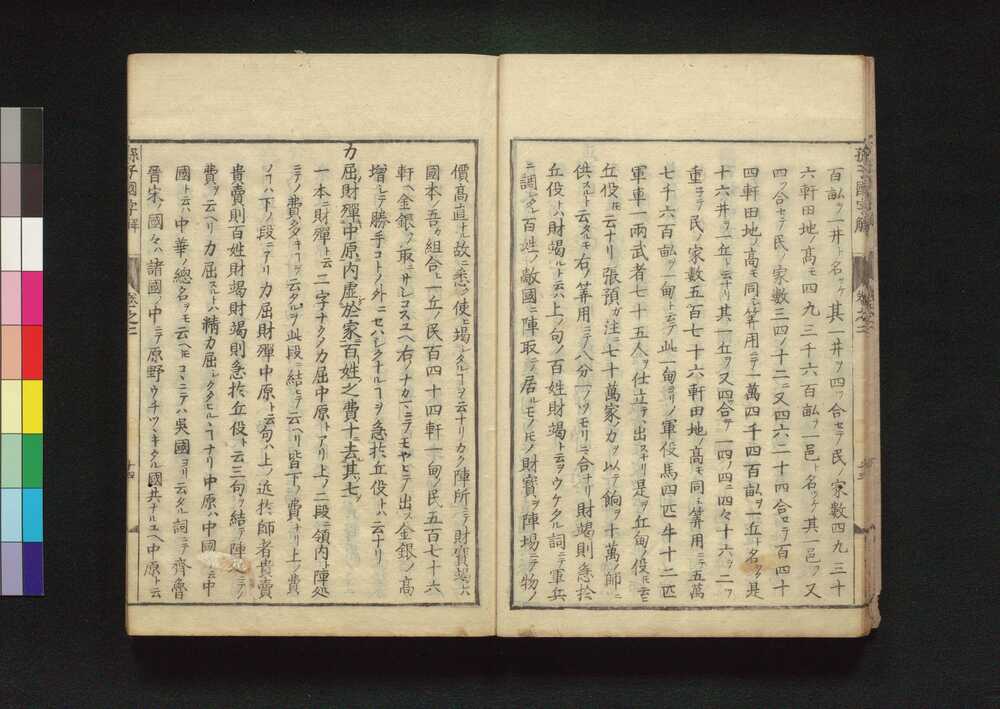 百畝ヲ一井ト名ツケ其一井ヲ四ツ合セテ民ノ家数四九三十
六軒田地ノ髙モ四九三千六百畝ヲ一邑ト名ツケ其一邑ヲ又
四ツ合セテ民ノ家数三四ノ十二又四六二十四合セテ百四十
四軒田地ノ高モ同シ筭用ニテ一萬四千四百畝ヲ一丘ト名ツク是
十六井ヲ一丘ト云ナリ其一丘ヲ又四合テ一四ノ四四々十六ヲ二ツ
重子テ民ノ家数五百七十六軒田地ノ髙モ同シ筭用ニテ五萬
七千六百畝ヲ一甸ト云テ此一甸ヨリノ軍役馬四匹牛十二匹
軍車一両武者七十五人ヲ仕立テ出スナリ是ヲ丘甸ノ役トモ
丘役トモ云ナリ張預カ注ニ七十萬家ノ力ヲ以テ餉ヲ十萬ノ師ニ
供スルト云タルモ右ノ筭用ニテ八分一ノツモリニ合ナリ財竭則急於
丘役トハ財竭ルト云ハ上ノ句ノ百姓財竭ト云ヲウケタル詞ニテ軍兵
ニ調レタル百姓ノ敵國ニ陣取テ居ルモノ氏ノ財寳ヲ陣場ニテ物ノ
孫子國字解
卷之二
十三
價髙直ナル故ニ悉ク使ヒ竭シタルコヲ云ナリカク陣所ニテ財寳竭レハ
國本ノ吾カ組合ヒ一丘ノ民百四十四軒一甸ノ民五百七十六
軒ヘ金銀ヲ取ニヤレコスユヘ右ノナカマニテモヤヒニテ出ス金銀ノ高
増シテ勝手コトノ外ニセハシクナルコヲ急於丘役トハ云ナリ
力屈財殫中原内虚於家百姓之費十去其七
一本ニ財殫ト云二字ナクノ力屈中原トアリ上ノ二段ニ領内ト陣処
ニテノ費タタキコヲ云タルヲ此段ニ結ヒテ云ヘリ皆下ノ費ナリ上ノ費
ノコハ下ノ段ニアリ力屈財殫中原ト云句ハ上ノ近於師者貴賣
貴賣則百姓財竭財竭則急於丘役ト云三句ヲ結テ陣処ニテノ
費ヲ云ヘリ力屈スルトハ精力屈シクタヒルヽコナリ中原ハ中國ト云中
國ト云ハ中華ノ總名ヲモ云ヘ氏コヽニテハ吳國ヨリ云タル詞ニテ齊魯
晉宋ノ國々ハ諸國ノ中ニテ原野ウチツヽキタル國共ナルユヘ中原ト云
孫子國字解
卷之二
十四